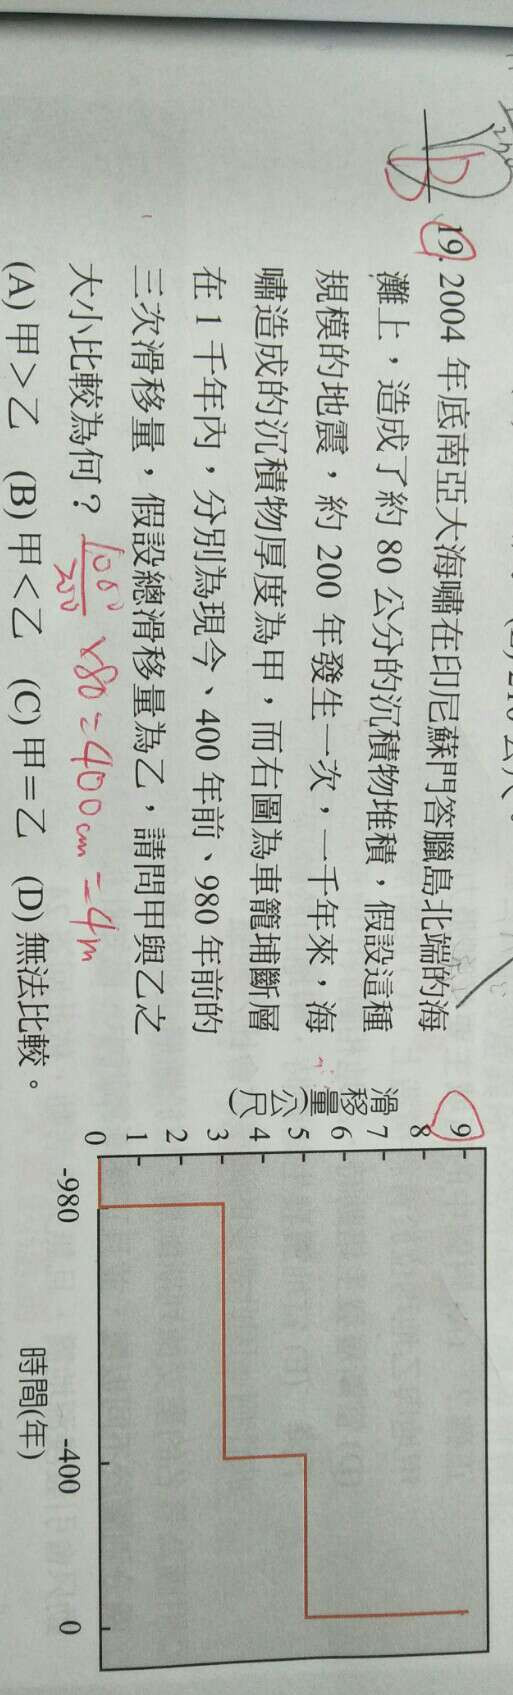 B
19. 2004 年底南亞大海嘯在印尼蘇門答臘島北端的海
灘上，造成了約 80 公分的沉積物堆積，假設這種
規模的地震，約 200 年發生一次，一千年來，海
嘯造成的沉積物厚度為甲，而右圖為車籠埔斷層
在 1 千年內，分別為現今、400 年前、980 年前的
三次滑移量，假設總滑移量為乙，請問甲與乙之
大小比較為何？
1000/200 ×80 = 400cm = 4m
(A) 甲＞乙 (B) 甲＜乙 (C) 甲＝乙 (D) 無法比較。
滑移量(公尺)
9
8
7
6
5
4
3
2
1
0
-980 -400 0
時間(年)